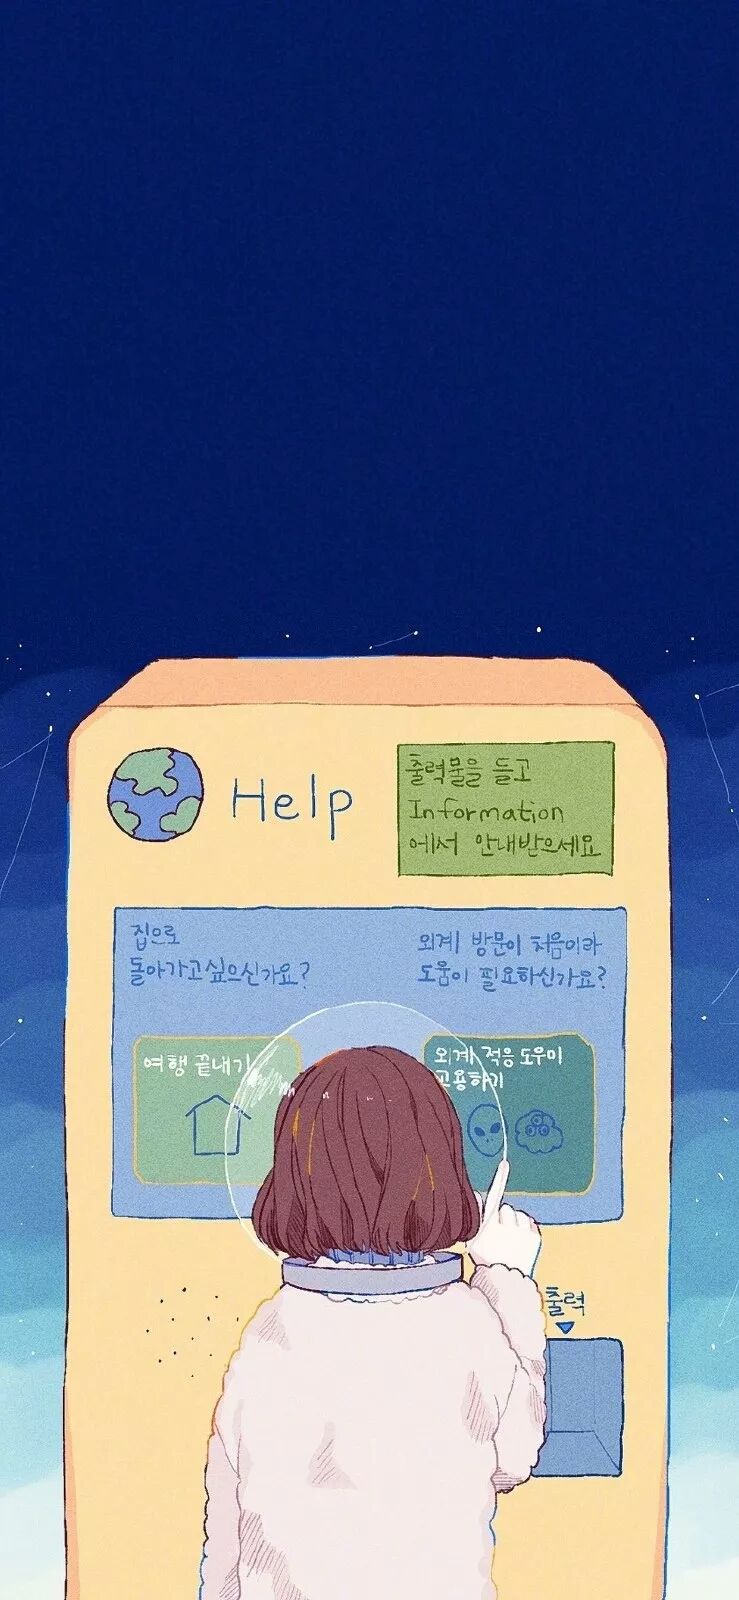 Help
출력물을 들고
Information
에서 안내받으세요
집으로
돌아가고싶으신가요?
외계 방문이 처음이라
도움이 필요하신가요?
여행 끝내기
외계 적응 도우미
고용하기
출력